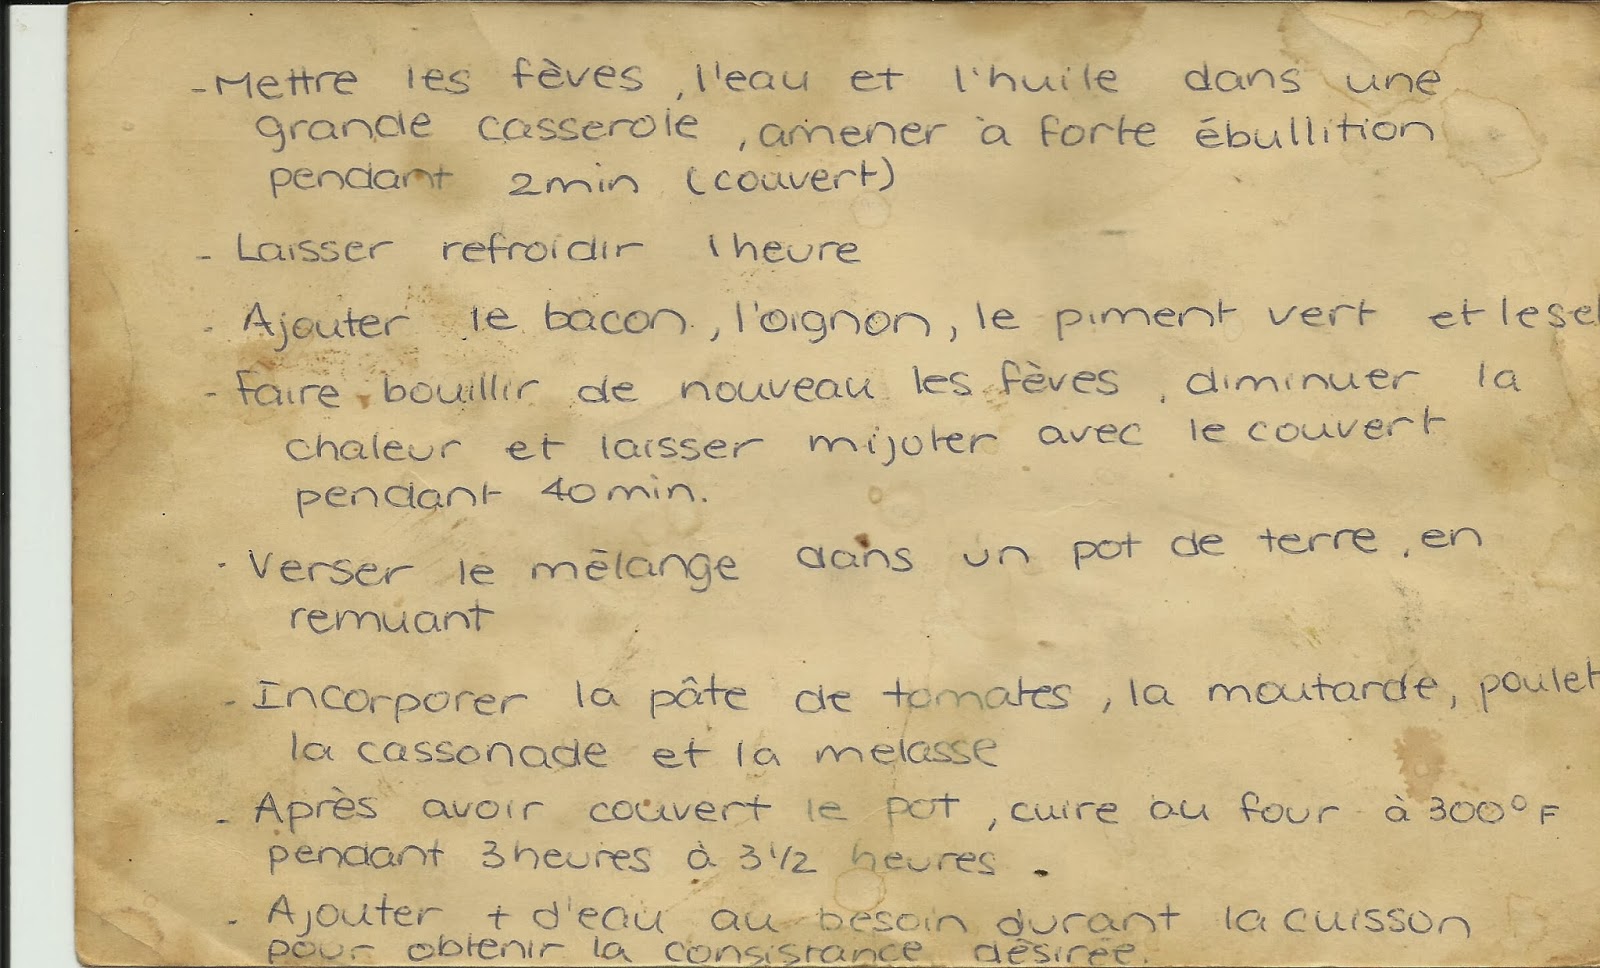 - Mettre les fèves, l'eau et l'huile dans une
grande casserole, amener à forte ébullition
pendant 2 min (couvert)
- Laisser refroidir 1 heure
- Ajouter le bacon, l'oignon, le piment vert et le sel
- Faire bouillir de nouveau les fèves, diminuer la
chaleur et laisser mijoter avec le couvert
pendant 40 min.
- Verser le mélange dans un pot de terre, en
remuant
- Incorporer la pâte de tomates, la moutarde, poulet
la cassonade et la melasse
- Après avoir couvert le pot, cuire au four à 300° F
pendant 3 heures à 3 1/2 heures.
- Ajouter + d'eau au besoin durant la cuisson
pour obtenir la consistance désirée.